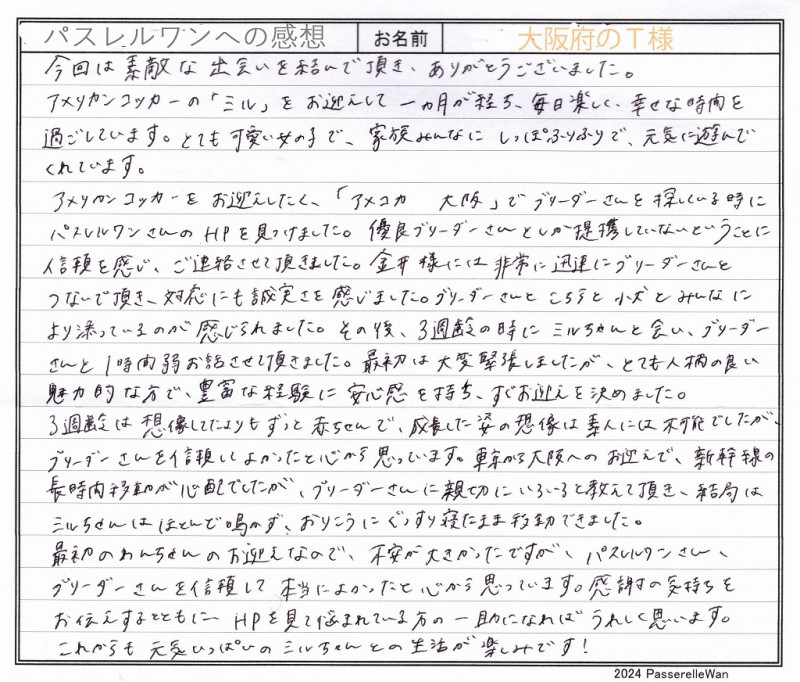 パスレルワンへの感想 お名前 大阪府のT様
今回は素敵な出会いを結んで頂き、ありがとうございました。
アメリカンコッカーの「ミル」をお迎えして一ヵ月が経ち、毎日楽しく、幸せな時間を
過ごしています。とても可愛い女の子で、家族みんなにしっぽふりふりで、元気に遊んで
くれています。
アメリカンコッカーをお迎えしたく、「アメコカ 大阪」でブリーダーさんを探している時に
パスレルワンさんのHPを見つけました。優良ブリーダーさんとしか提携していないということに
信頼を感じ、ご連絡させて頂きました。金井様には非常に迅速にブリーダーさんと
つないで頂き、対応にも誠実さを感じました。ブリーダーさんとこちらと小犬とみんなに
より添っているのが感じられました。その後、3週齢の時にミルちゃんと会い、ブリーダー
さんと1時間弱お話させて頂きました。最初は大変緊張しましたが、とても人柄の良い
魅力的な方で、豊富な経験に安心感を持ち、すぐお迎えを決めました。
3週齢は想像してたよりもずっと赤ちゃんで、成長した姿の想像は素人には不可能でしたが、
ブリーダーさんを信頼してよかったと心から思っています。東京から大阪へのお迎えで、新幹線の
長時間移動が心配でしたが、ブリーダーさんに親切にいろいろと教えて頂き、結局は
ミルちゃんはほとんど鳴かず、おりこうにぐっすり寝たまま移動できました。
最初のわんちゃんのお迎えなので、不安が大きかったですが、パスレルワンさん、
ブリーダーさんを信頼して本当によかったと心から思っています。感謝の気持ちを
お伝えするとともに、HPを見て悩まれている方の一助になればうれしく思います。
これからも元気いっぱいのミルちゃんとの生活が楽しみです!
2024 PasserelleWan